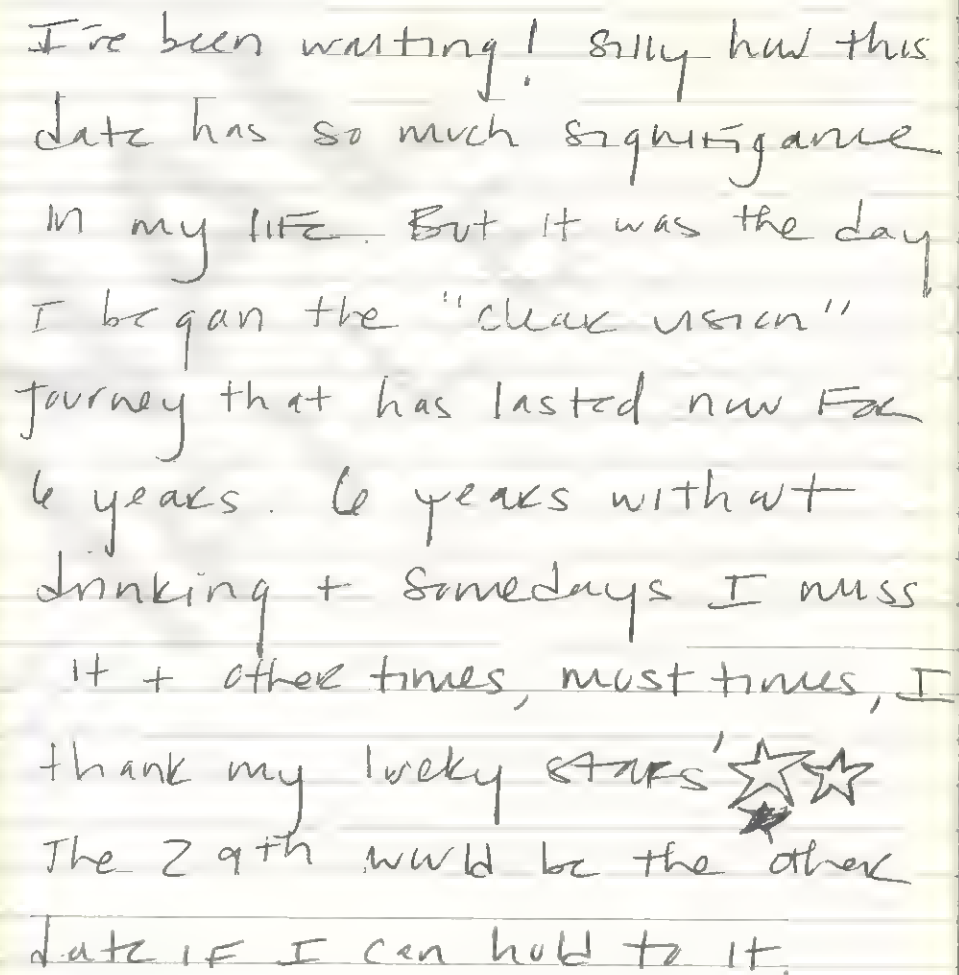 I've been waiting! Silly how this
date has so much signifigance
in my life. But it was the day
I began the "clear vision"
journey that has lasted now for
6 years. 6 years without
drinking + somedays I miss
it + other times, most times, I
thank my lucky stars'
The 29th would be the other
date if I can hold to it.